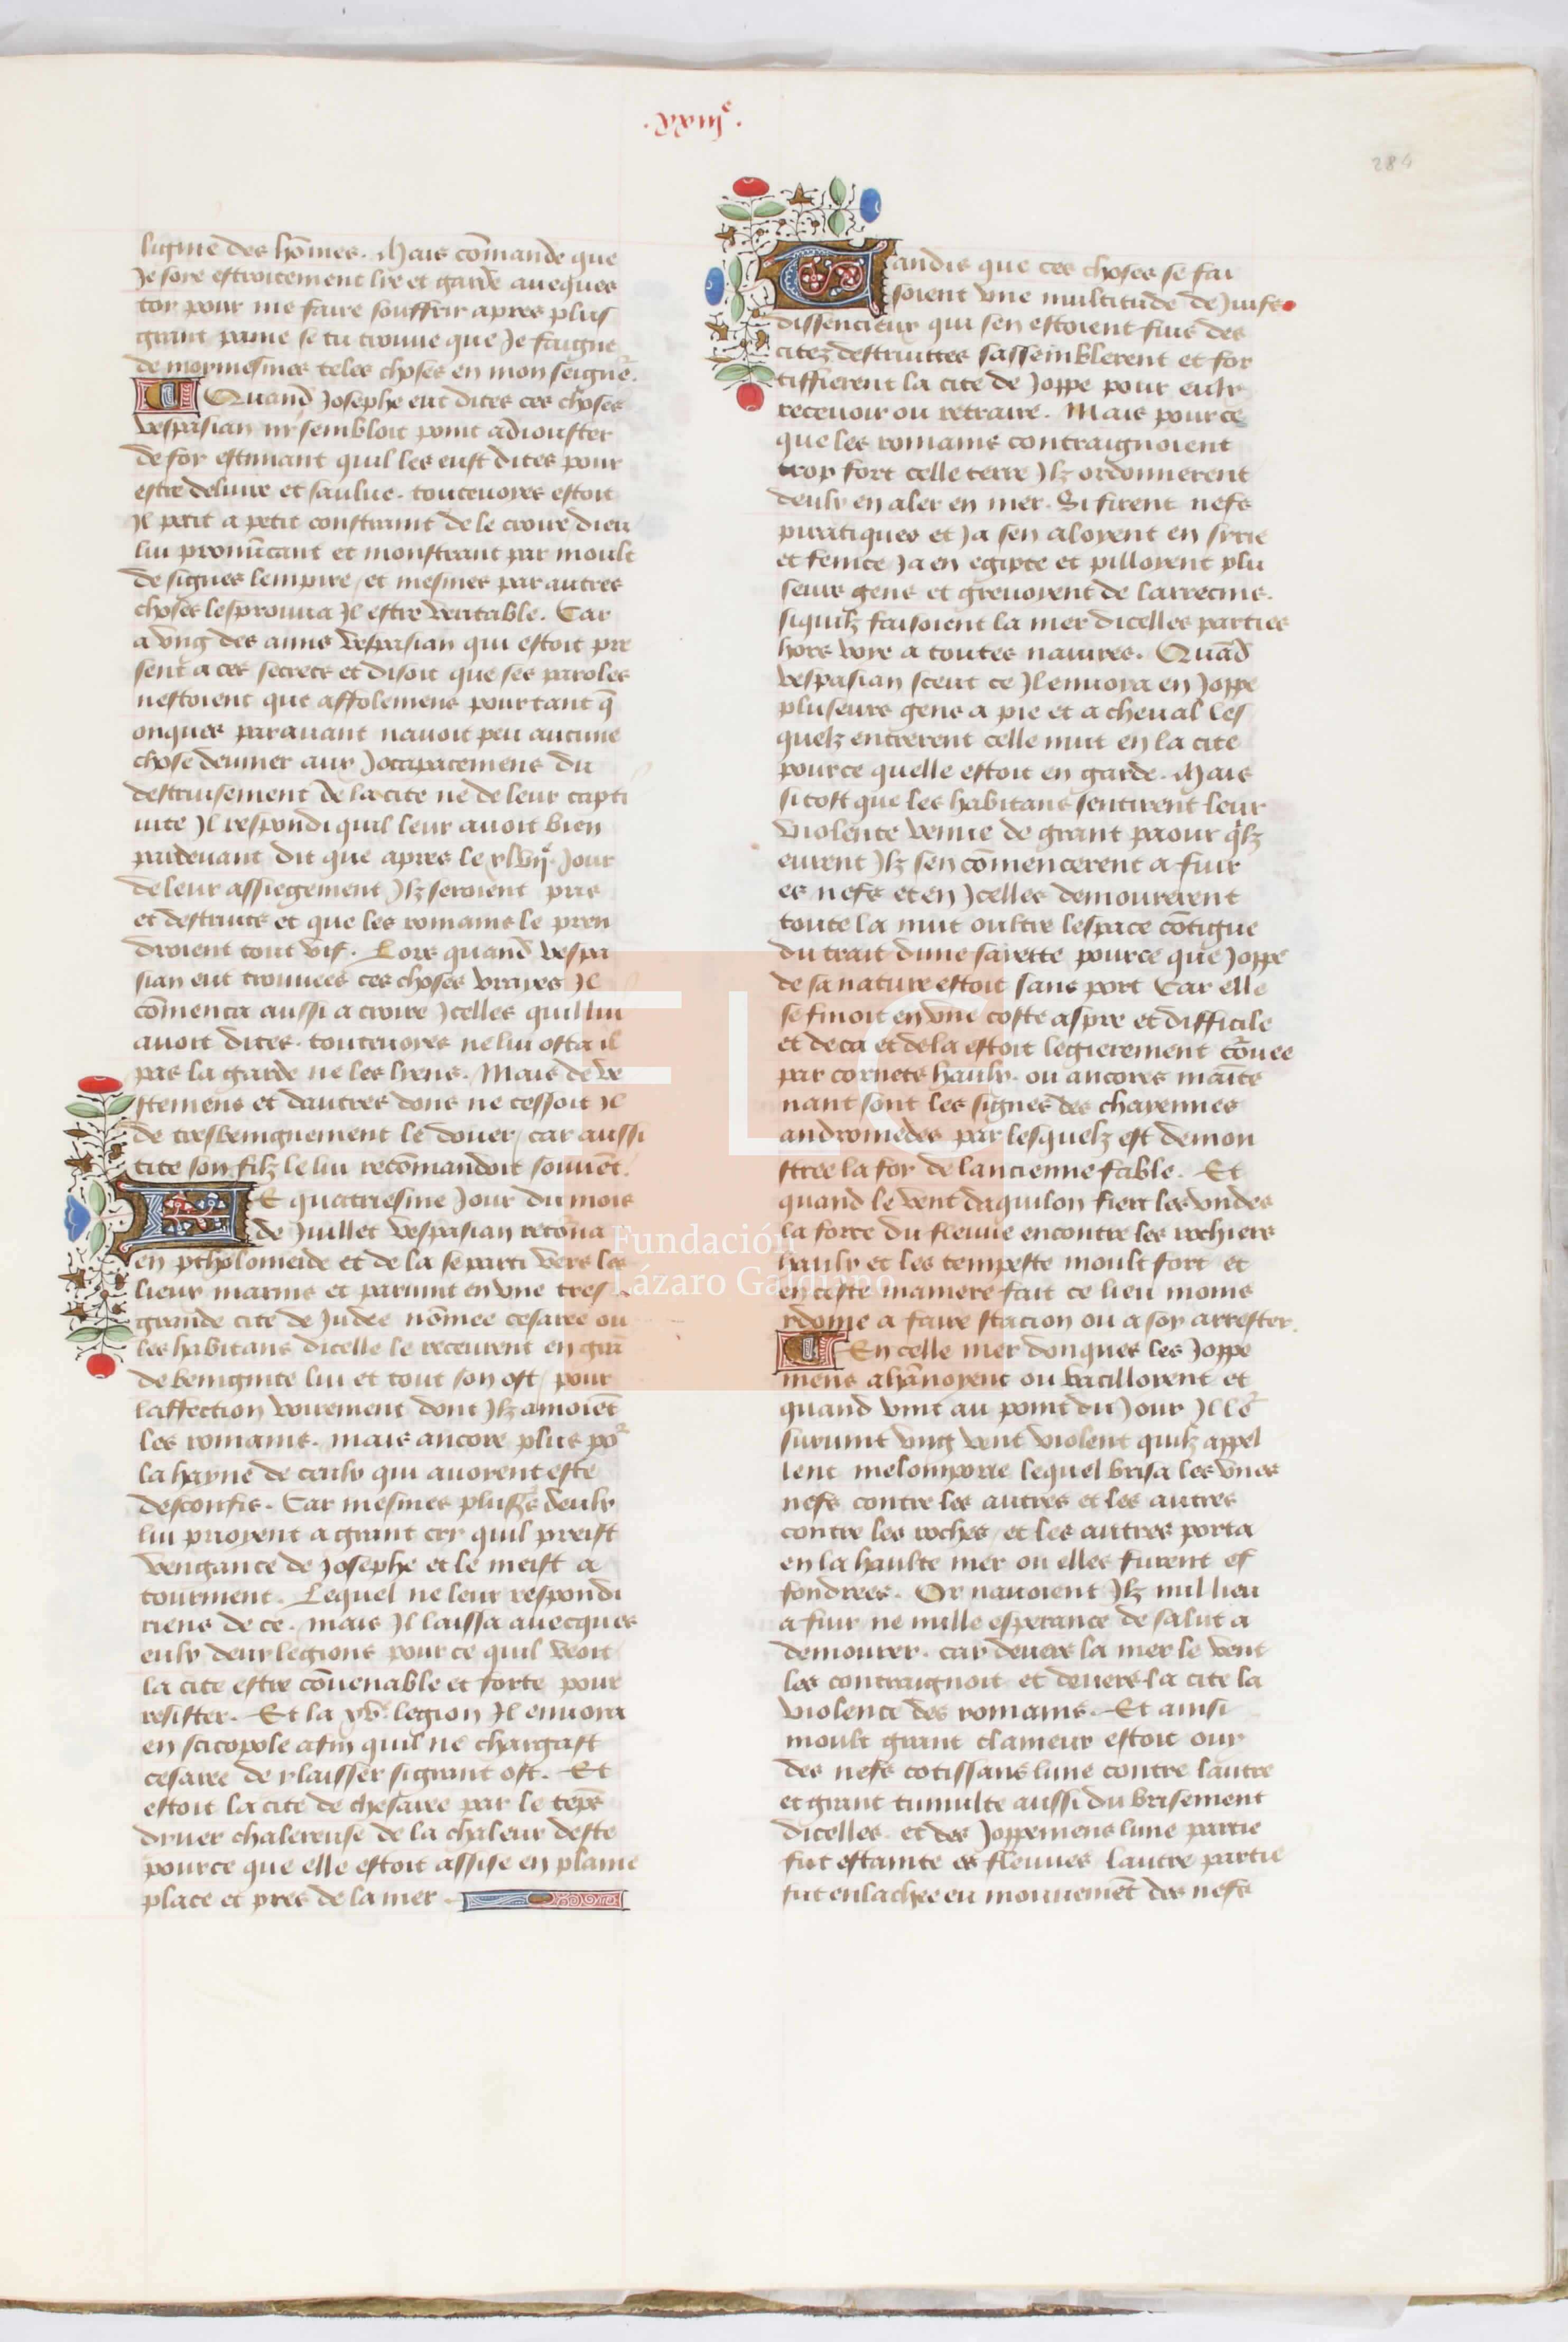 .xxxiiij.
284
lignie des hõmes. Mais cõmande que
Je soye estroitement lye et garde avecques
toy pour me faire souffrir apres plus
grant paine se tu trouve que Je faigne
de moymesmes teles choses en mon seignr̃.
Quand Josephe eut dites ces choses
vespasian ny sembloit point adiouster
de foy estimant quil les eust dites pour
estre delivre et saulve. toutevoyes estoit
Il petit a petit constraint de le croire dieu
lui pronũcant et monstrant par moult
de signes lempire / et mesmes par autres
choses lesprouva Il estre veritable. Car
a vng des amis vespasian qui estoit pre
sent a ces secrets et disoit que ses paroles
nestoient que affolemens pourtant q̃
onques paravant navoit peu aucune
chose deviner aux Jotapatemens du
destruisement de la cite ne de leur capti
vite Il respondi quil leur avoit bien
pardevant dit que apres le xlvijᵉ. Jour
de leur assiegement Ilz seroient pris
et destruits et que les romains le pren
droient tout vif. Lors quand vespa
sian eut trouvees ces choses vrayes Il
cõmenca aussi a croire Icelles quil lui
avoit dites. toutevoyes ne lui osta il
pas la garde ne les lyens. Mais de ve
stemens et dautres dons ne cessoit Il
de tresbenignement le doner / car aussi
tite son filz le lui recõmandoit souvẽt.
LE quatriesme Jour du mois
de Juillet vespasian retõna
en ptholomeide et de la se parti vers les
lieux marins et parvint en vne tres
grande cite de Judee nõmee cesaree ou
les habitans dicelle le receurent en grã
de benignite lui et tout son ost / pour
laffection voirement dont Ilz amoiẽt
les romains. mais ancore plus poʳ
la hayne de ceulx qui avoyent este
desconfis. Car mesmes plusʳs deulx
lui prioyent a grant cry quil preist
vengance de Josephe et le meist a
tourment. Lequel ne leur respondi
riens de ce. mais Il laissa avecques
eulx deux legions pour ce quil veoit
la cite estre cõvenable et forte pour
resister. Et la xvᵉ. legion Il envoya
en scitopole afin quil ne chargast
cesaree de y laisser si grant ost. Et
estoit la cite de chesaree par le tẽps
dyver chalereuse de la chaleur deste
pource que elle estoit assise en plaine
place et pres de la mer.
Tandis que ces choses se fai
soient vne multitude de Juifs
dissencieux qui sen estoient fuis des
citez destruittes sassemblerent et for
tiffierent la cite de Joppe pour eulx
recevoir ou retraire. Mais pource
que les romains contraignoient
trop fort celle terre Ilz ordonnerent
deulx en aler en mer. Si firent nefs
piratiques et Ja sen aloyent en syrie
et fenice Ja en egipte et pilloyent plu
seurs gens et grevoyent de larrecins.
si quilz faisoient la mer dicelles parties
hors voye a toutes navires. Quãd
vespasian sceut ce Il envoya en Joppe
pluseurs gens a pie et a cheval les
quelz entrerent celle nuit en la cite
pource quelle estoit en garde. Mais
si tost que les habitans sentirent leur
violente venue de grant paour q̃lz
eurent Ilz sen cõmencerent a fuir
es nefs et en Icelles demourerent
toute la nuit oultre lespace cõtigue
du trait dune saiette pource que Joppe
de sa nature estoit sans port Car elle
se finoit en vne coste aspre et difficile
et deca et dela estoit legierement cõuee
par cornets haulx. ou ancores maĩte
nant sont les signes des chayennes
andromedes par lesquelz est demon
stree la foy de lancienne fable. Et
quand le vent daquilon fiert les vndes
la force du fleuve encontre les rochiers
haulx et les tempeste moult fort et
en ceste maniere fait ce lieu moins
ydoine a faire stacion ou a soy arrester.
En celle mer donques les Joppe
niens ahãnoyent ou vacilloyent et
quand vint au point du Jour Il leʳ
survint vng vent violent quilz appel
lent melomporie lequel brisa les vnes
nefs contre les autres et les autres
contre les roches / et les autres porta
en la haulte mer ou elles furent ef
fondrees. Or navoient Ilz nul lieu
a fuir ne nulle esperance de salut a
demourer. car devers la mer le vent
les contraignoit et devers la cite la
violence des romains. Et ainsi
moult grant clameur estoit ouy
des nefs cotissans lune contre lautre
et grant tumulte aussi du brisement
dicelles. et des Joppeniens lune partie
fut estainte es fleuves lautre partie
fut enlachee en mouvemẽt des nefs
FLG
Fundación
Lázaro Galdiano